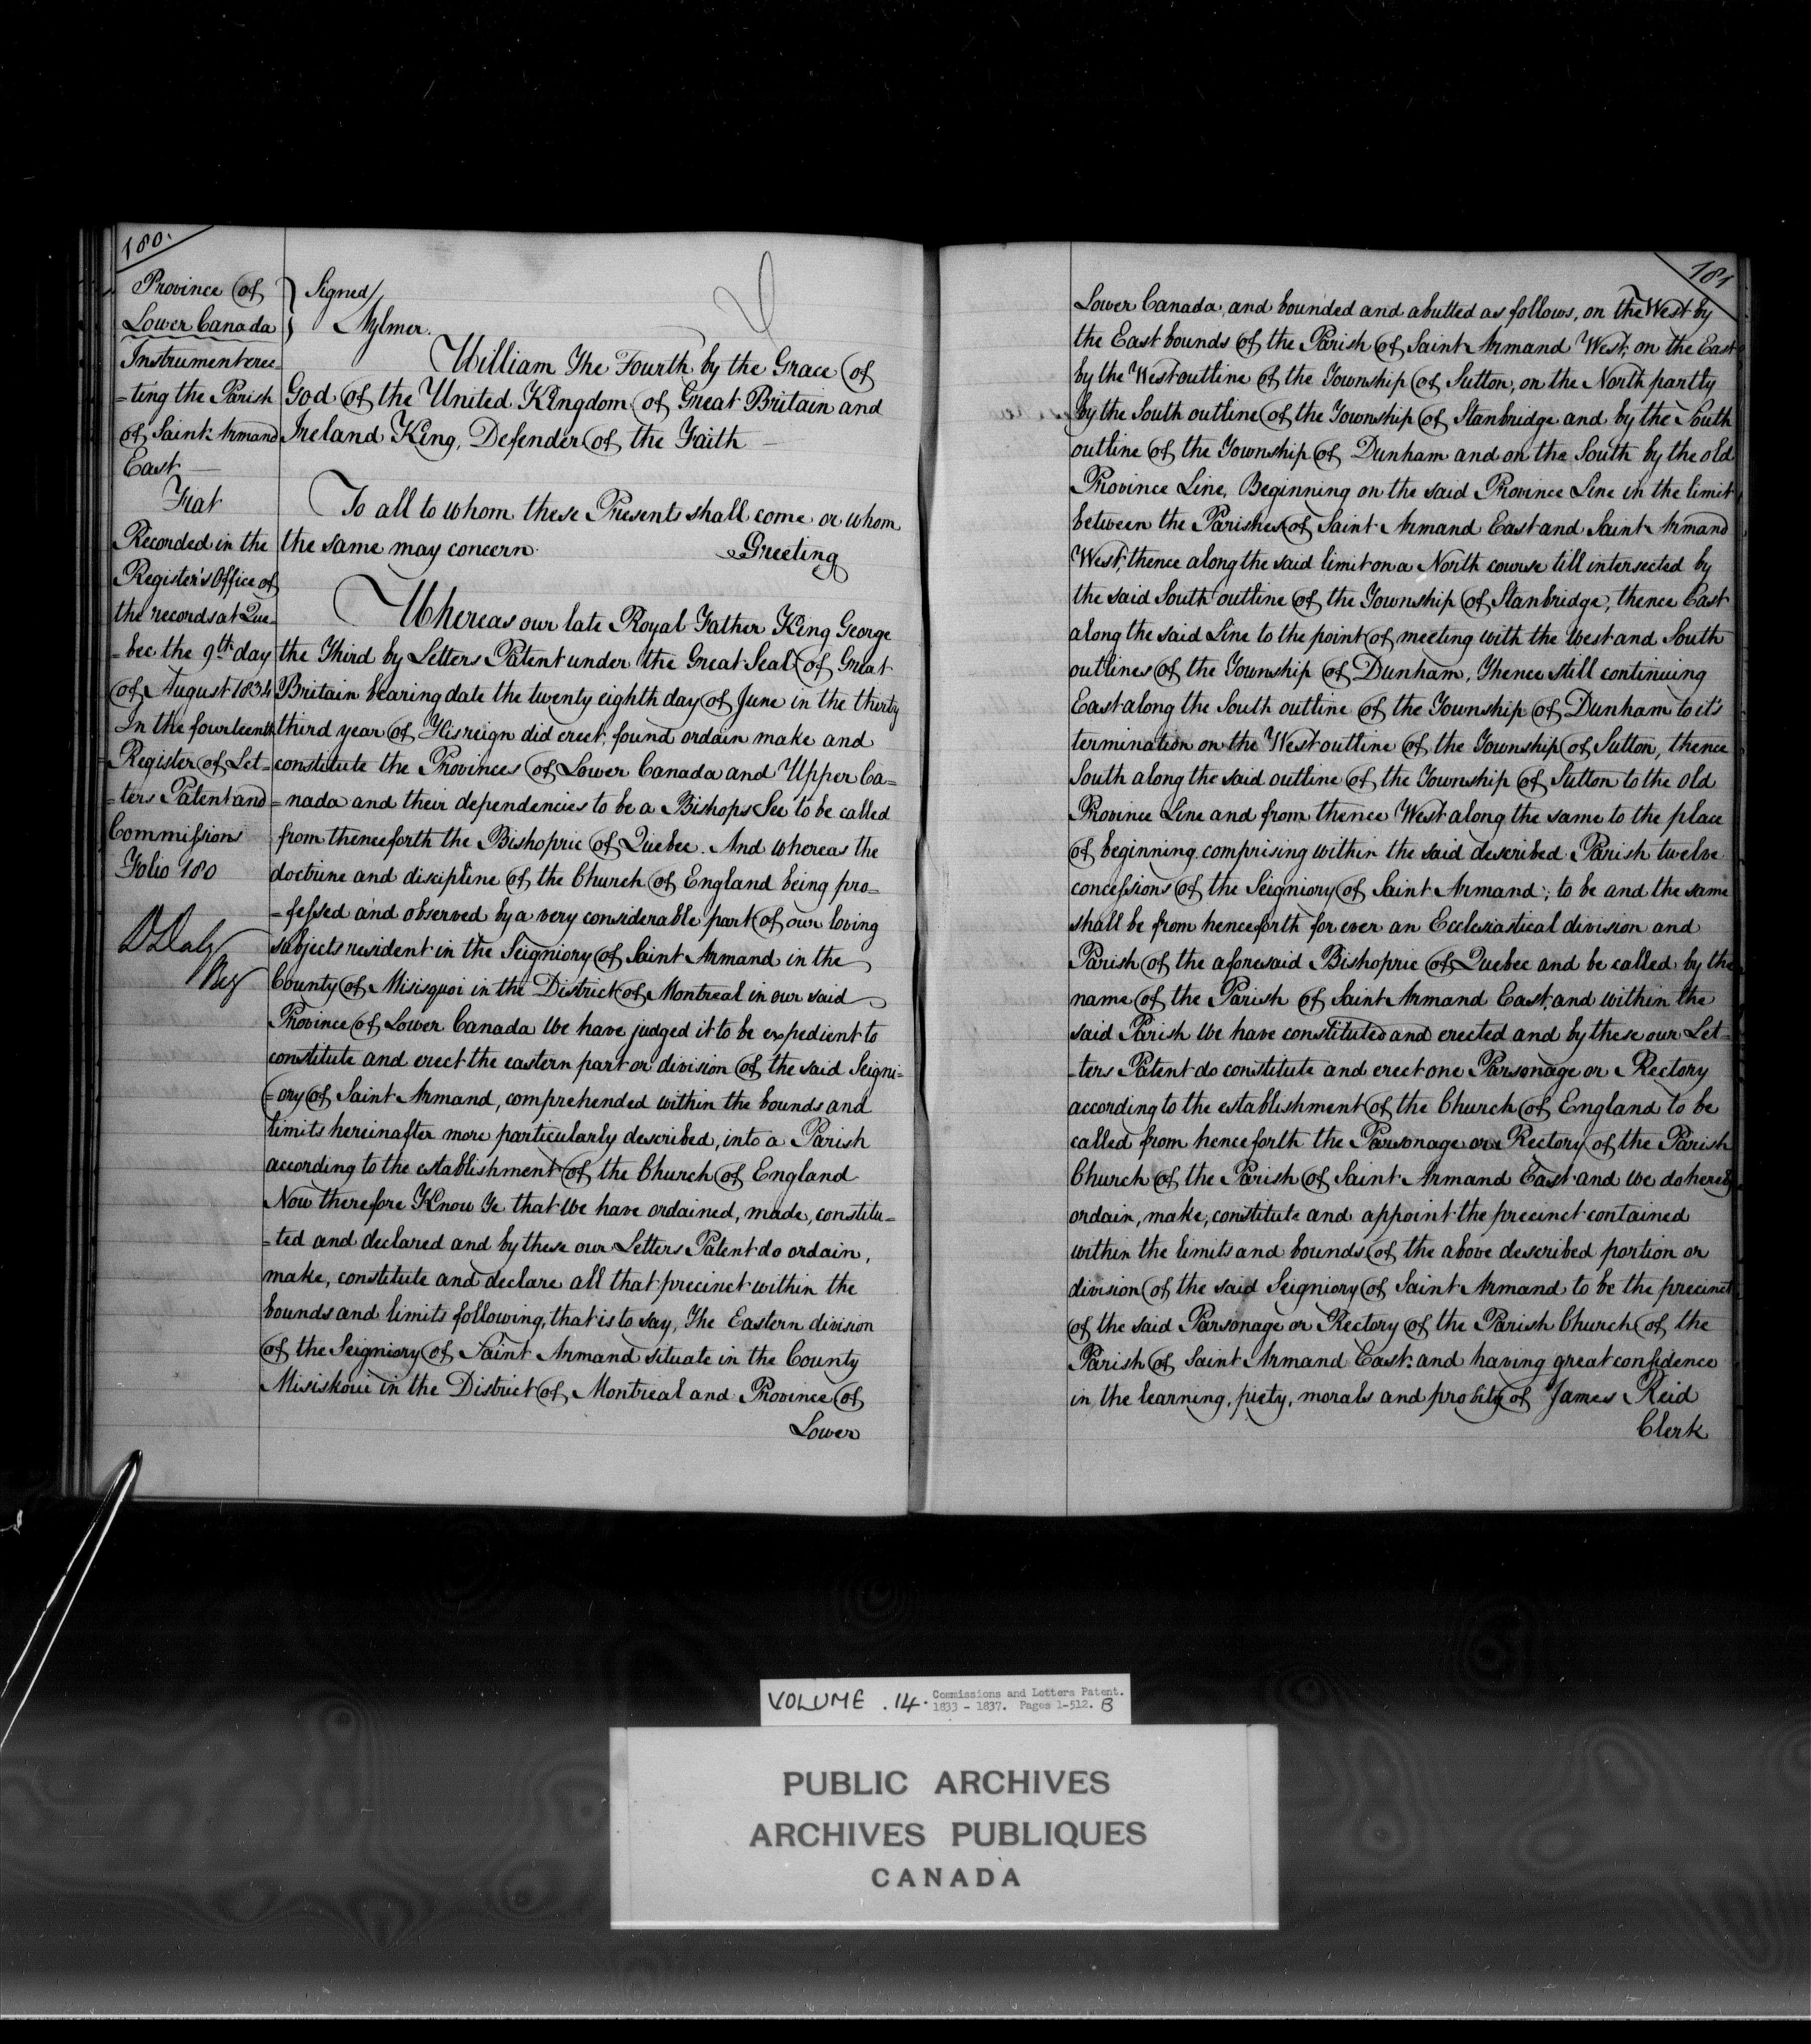 180.
Province of
Lower Canada
Instrument erec-
-ting the Parish
of Saint Armand
East
Fiat
Recorded in the
Register's Office of
the records at Que-
-bec the 9th day
of August 1834
In the fourteenth
Register of Let-
-ters Patent and
Commissions
Folio 180
D Daly
Reg
Signed/
Aylmer.
William The Fourth by the Grace of
God of the United Kingdom of Great Britain and
Ireland King, Defender of the Faith
To all to whom these Presents shall come or whom
the same may concern. Greeting
Whereas our late Royal Father King George
the Third by Letters Patent under the Great Seal of Great
Britain bearing date the twenty eighth day of June in the thirty
third year of His reign did erect, found ordain make and
constitute the Provinces of Lower Canada and Upper Ca=
=nada and their dependencies to be a Bishops See to be called
from thenceforth the Bishopric of Quebec. And whereas the
doctrine and discipline of the Church of England being pro=
=fessed and observed by a very considerable part of our loving
subjects resident in the Seigniory of Saint Armand in the
County of Misisquoi in the District of Montreal in our said
Province of Lower Canada We have judged it to be expedient to
constitute and erect the eastern part or division of the said Seigni=
=ory of Saint Armand, comprehended within the bounds and
limits hereinafter more particularly described, into a Parish
according to the establishment of the Church of England
Now therefore Know Ye that We have ordained, made, constitu=
=ted and declared and by these our Letters Patent do ordain,
make, constitute and declare all that precinct within the
bounds and limits following, that is to say, The Eastern division
of the Seigniory of Saint Armand situate in the County
Misiskoui in the District of Montreal and Province of
Lower
181
Lower Canada, and bounded and abutted as follows, on the West by
the East bounds of the Parish of Saint Armand West, on the East
by the West outline of the Township of Sutton, on the North partly
by the South outline of the Township of Stanbridge and by the South
outline of the Township of Dunham and on the South by the old
Province Line, Beginning on the said Province Line in the limit
between the Parishes of Saint Armand East and Saint Armand
West, thence along the said limit on a North course till intersected by
the said South outline of the Township of Stanbridge, thence East
along the said Line to the point of meeting with the West and South
outlines of the Township of Dunham, Thence still continuing
East along the South outline of the Township of Dunham to it's
termination on the West outline of the Township of Sutton, thence
South along the said outline of the Township of Sutton to the old
Province Line and from thence West along the same to the place
of beginning. comprising within the said described Parish twelve
concessions of the Seigniory of Saint Armand; to be and the same
shall be from henceforth for ever an Ecclesiastical division and
Parish of the aforesaid Bishopric of Quebec and be called by the
name of the Parish of Saint Armand East, and within the
said Parish We have constituted and erected and by these our Let-
-ters Patent do constitute and erect one Parsonage or Rectory
according to the establishment of the Church of England to be
called from henceforth the Parsonage or Rectory of the Parish
Church of the Parish of Saint Armand East and We do hereby
ordain, make, constitute and appoint the precinct contained
within the limits and bounds of the above described portion or
division of the said Seigniory of Saint Armand to be the precinct
of the said Parsonage or Rectory of the Parish Church of the
Parish of Saint Armand East: and having great confidence
in the learning, piety, morals and probity of James Reid
Clerk
VOLUME . 14. Commissions and Letters Patent.
1833 - 1837. Pages 1-512. B
PUBLIC ARCHIVES
ARCHIVES PUBLIQUES
CANADA